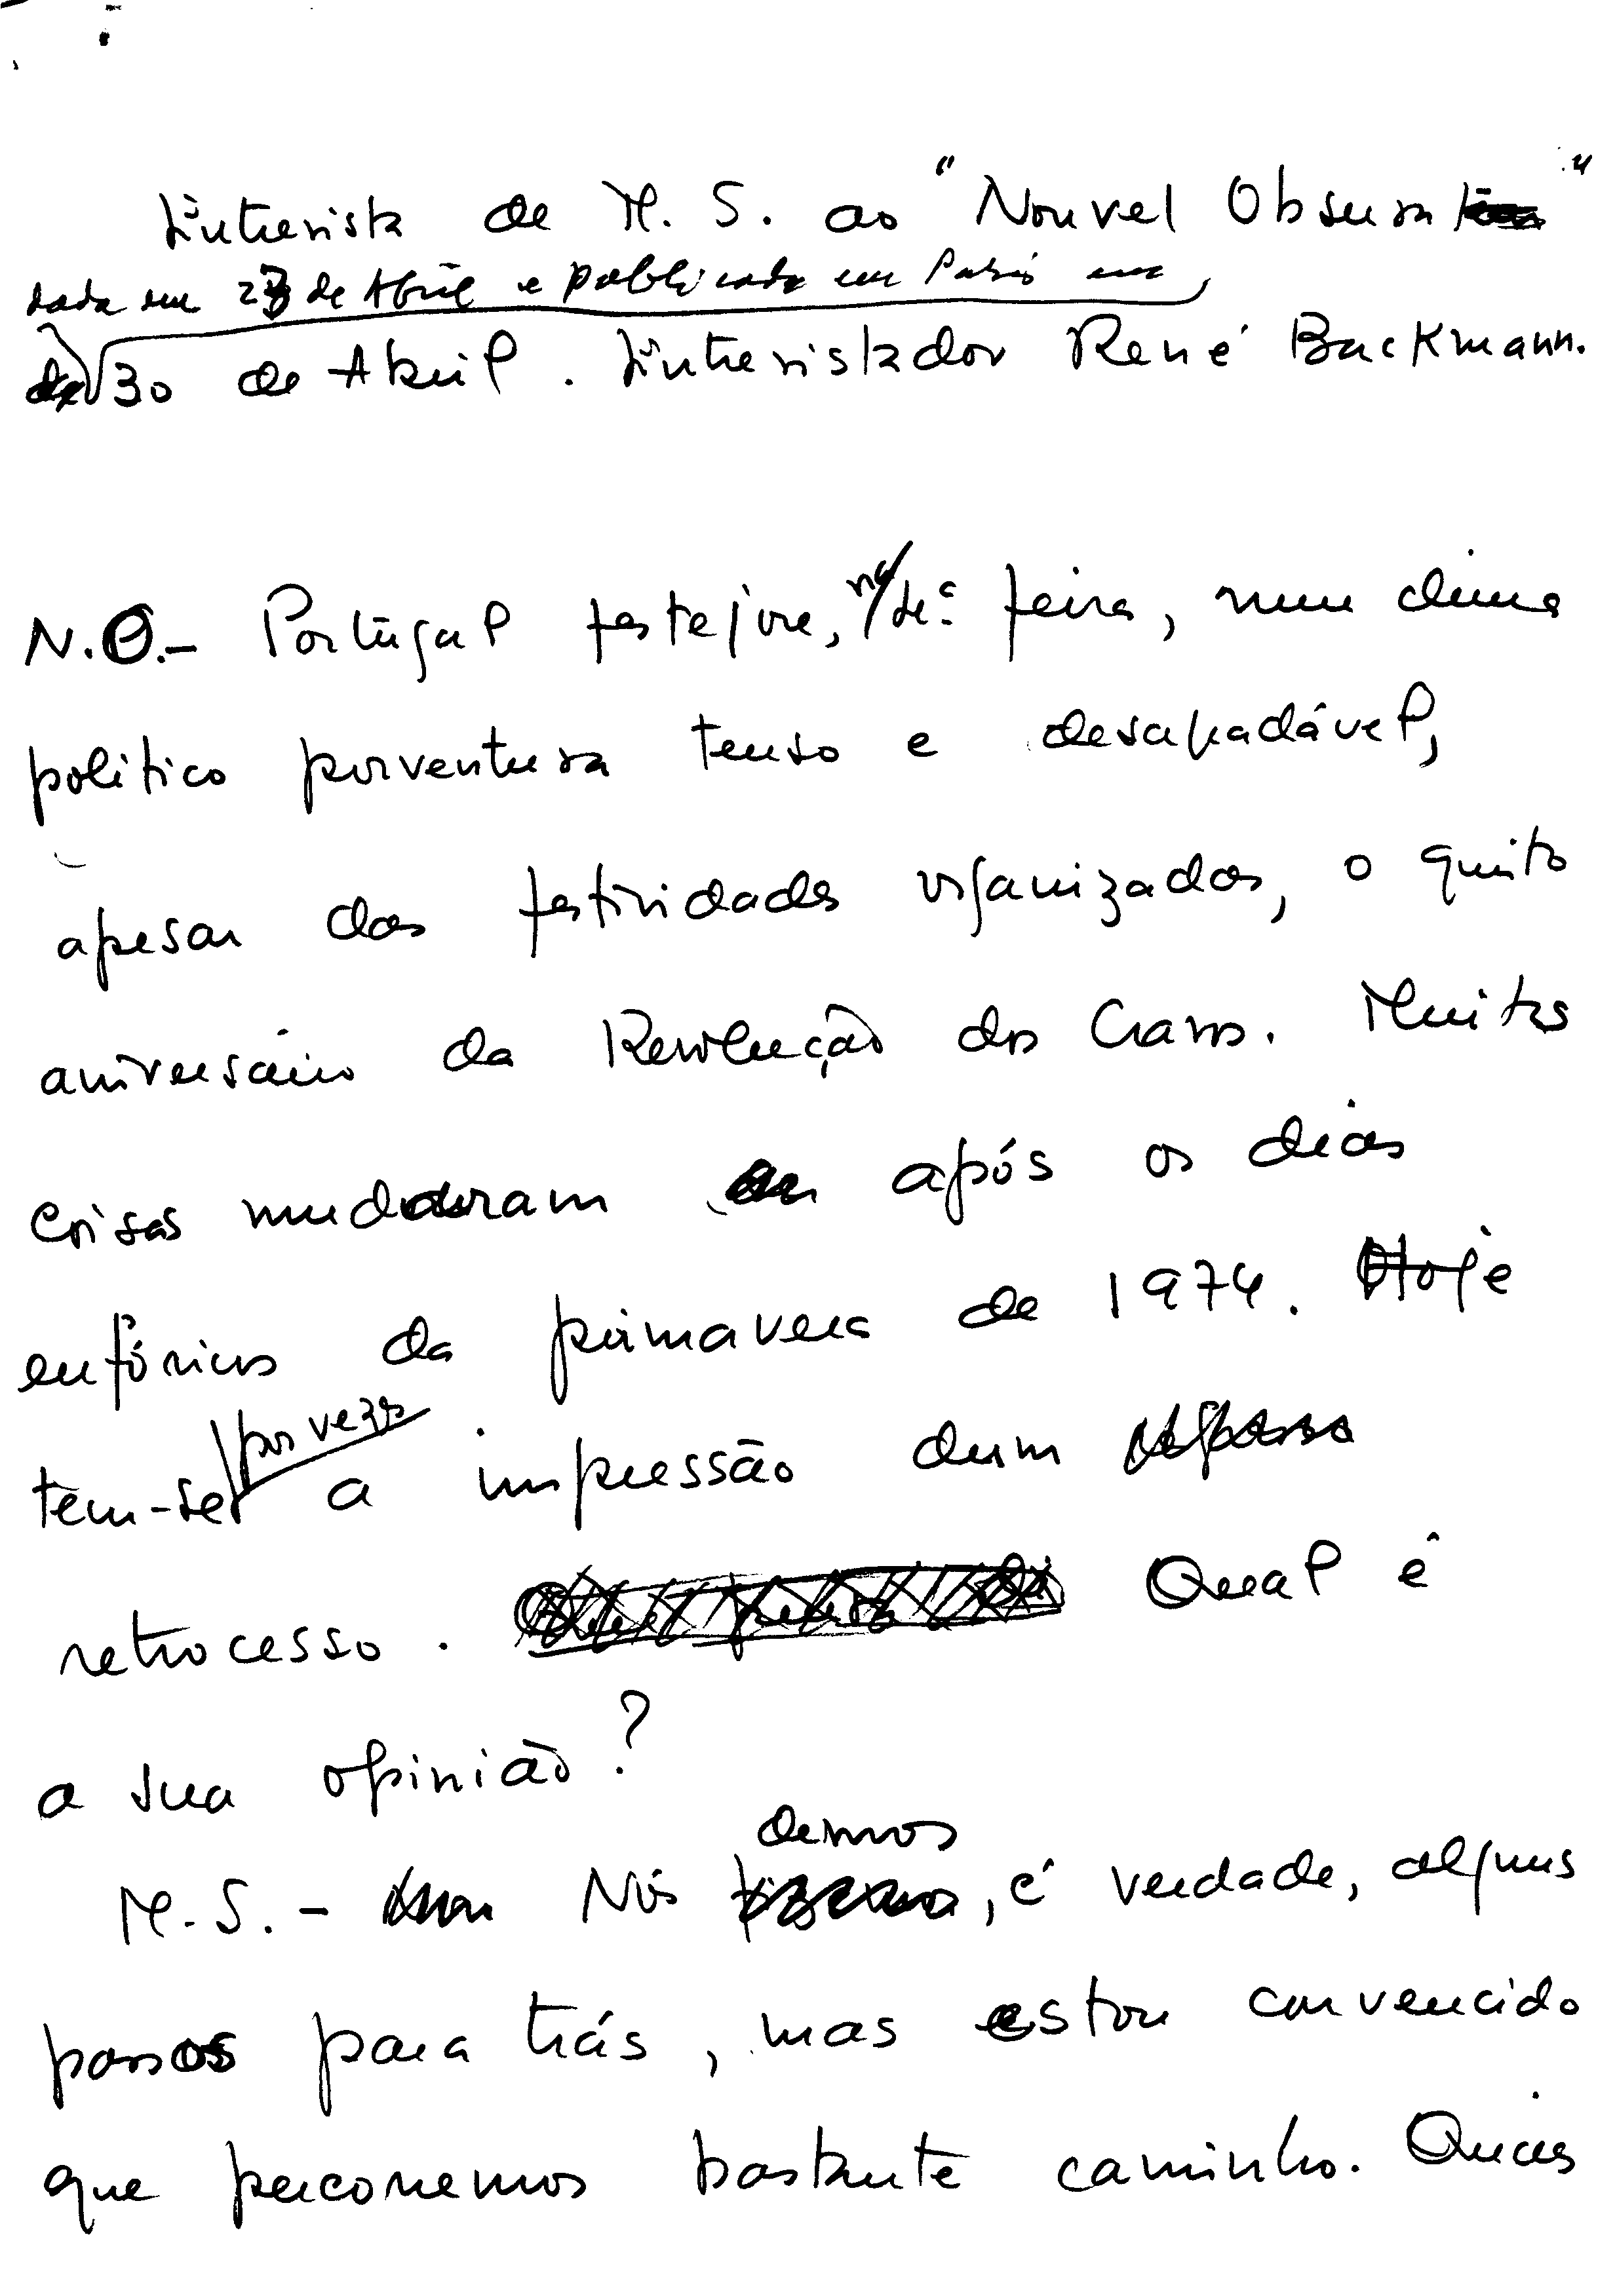 Entrevista de M. S. ao "Nouvel Observa"
dada em 23 de Abril e publicada em Paris em
30 de Abril. Entrevistador René Backmann.
N.O.- Portugal festejou, na 4ª feira, num clima
político porventura tenso e desagradável,
apesar das festividades organizadas, o quinto
aniversário da Revolução dos Cravos. Muitas
coisas mudaram após os dias
eufóricos da primavera de 1974. Hoje
tem-se por vezes a impressão dum
retrocesso. Qual é
a sua opinião?
M.S. - Nós demos, é verdade, alguns
passos para trás, mas estou convencido
que percorremos bastante caminho.